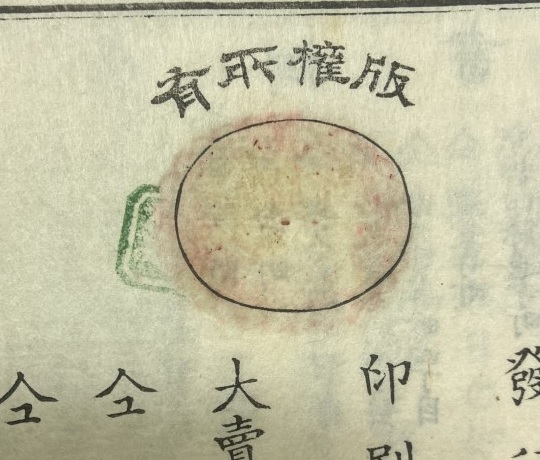 版權所有
發
印
大賣
仝
仝